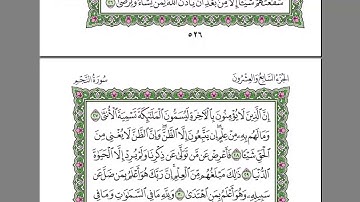 شَفَٰعَتُهُمْ شَيْـًٔا إِلَّا مِنۢ بَعْدِ أَن يَأْذَنَ ٱللَّهُ لِمَن يَشَآءُ وَيَرْضَىٰٓ ٢٦
٥٢٦
الجزء السابع والعشرون
سورة النجم
إِنَّ ٱلَّذِينَ لَا يُؤْمِنُونَ بِٱلْءَاخِرَةِ لَيُسَمُّونَ ٱلْمَلَٰٓئِكَةَ تَسْمِيَةَ ٱلْأُنثَىٰ ٢٧
وَمَا لَهُم بِهِۦ مِنْ عِلْمٍ إِن يَتَّبِعُونَ إِلَّا ٱلظَّنَّ وَإِنَّ ٱلظَّنَّ لَا يُغْنِى مِنَ
ٱلْحَقِّ شَيْـًٔا ٢٨ فَأَعْرِضْ عَن مَّن تَوَلَّىٰ عَن ذِكْرِنَا وَلَمْ يُرِدْ إِلَّا ٱلْحَيَوٰةَ
ٱلدُّنْيَا ٢٩ ذَٰلِكَ مَبْلَغُهُم مِّنَ ٱلْعِلْمِ إِنَّ رَبَّكَ هُوَ أَعْلَمُ بِمَن ضَلَّ عَن
سَبِيلِهِۦ وَهُوَ أَعْلَمُ بِمَنِ ٱهْتَدَىٰ ٣٠ وَلِلَّهِ مَا فِى ٱلسَّمَٰوَٰتِ وَمَا فِى